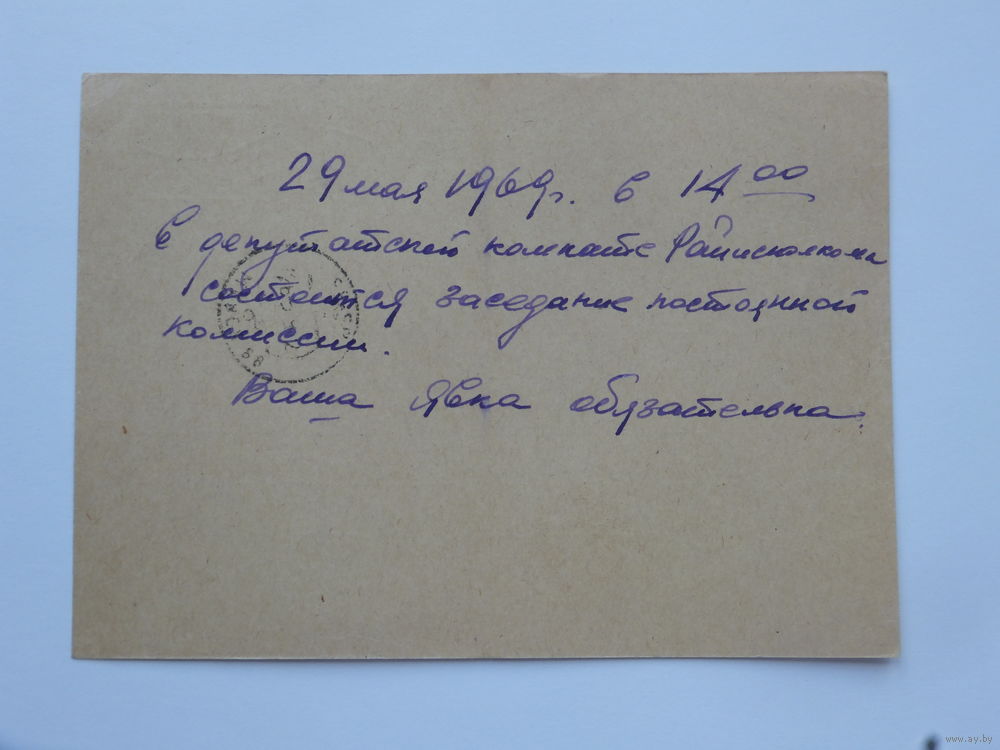 29 мая 1969г. в 14 00
в депутатской комнате Райисполкома
состоится заседание постоянной
комиссии.
Ваша явка обязательна.
СССР
www.ay.by